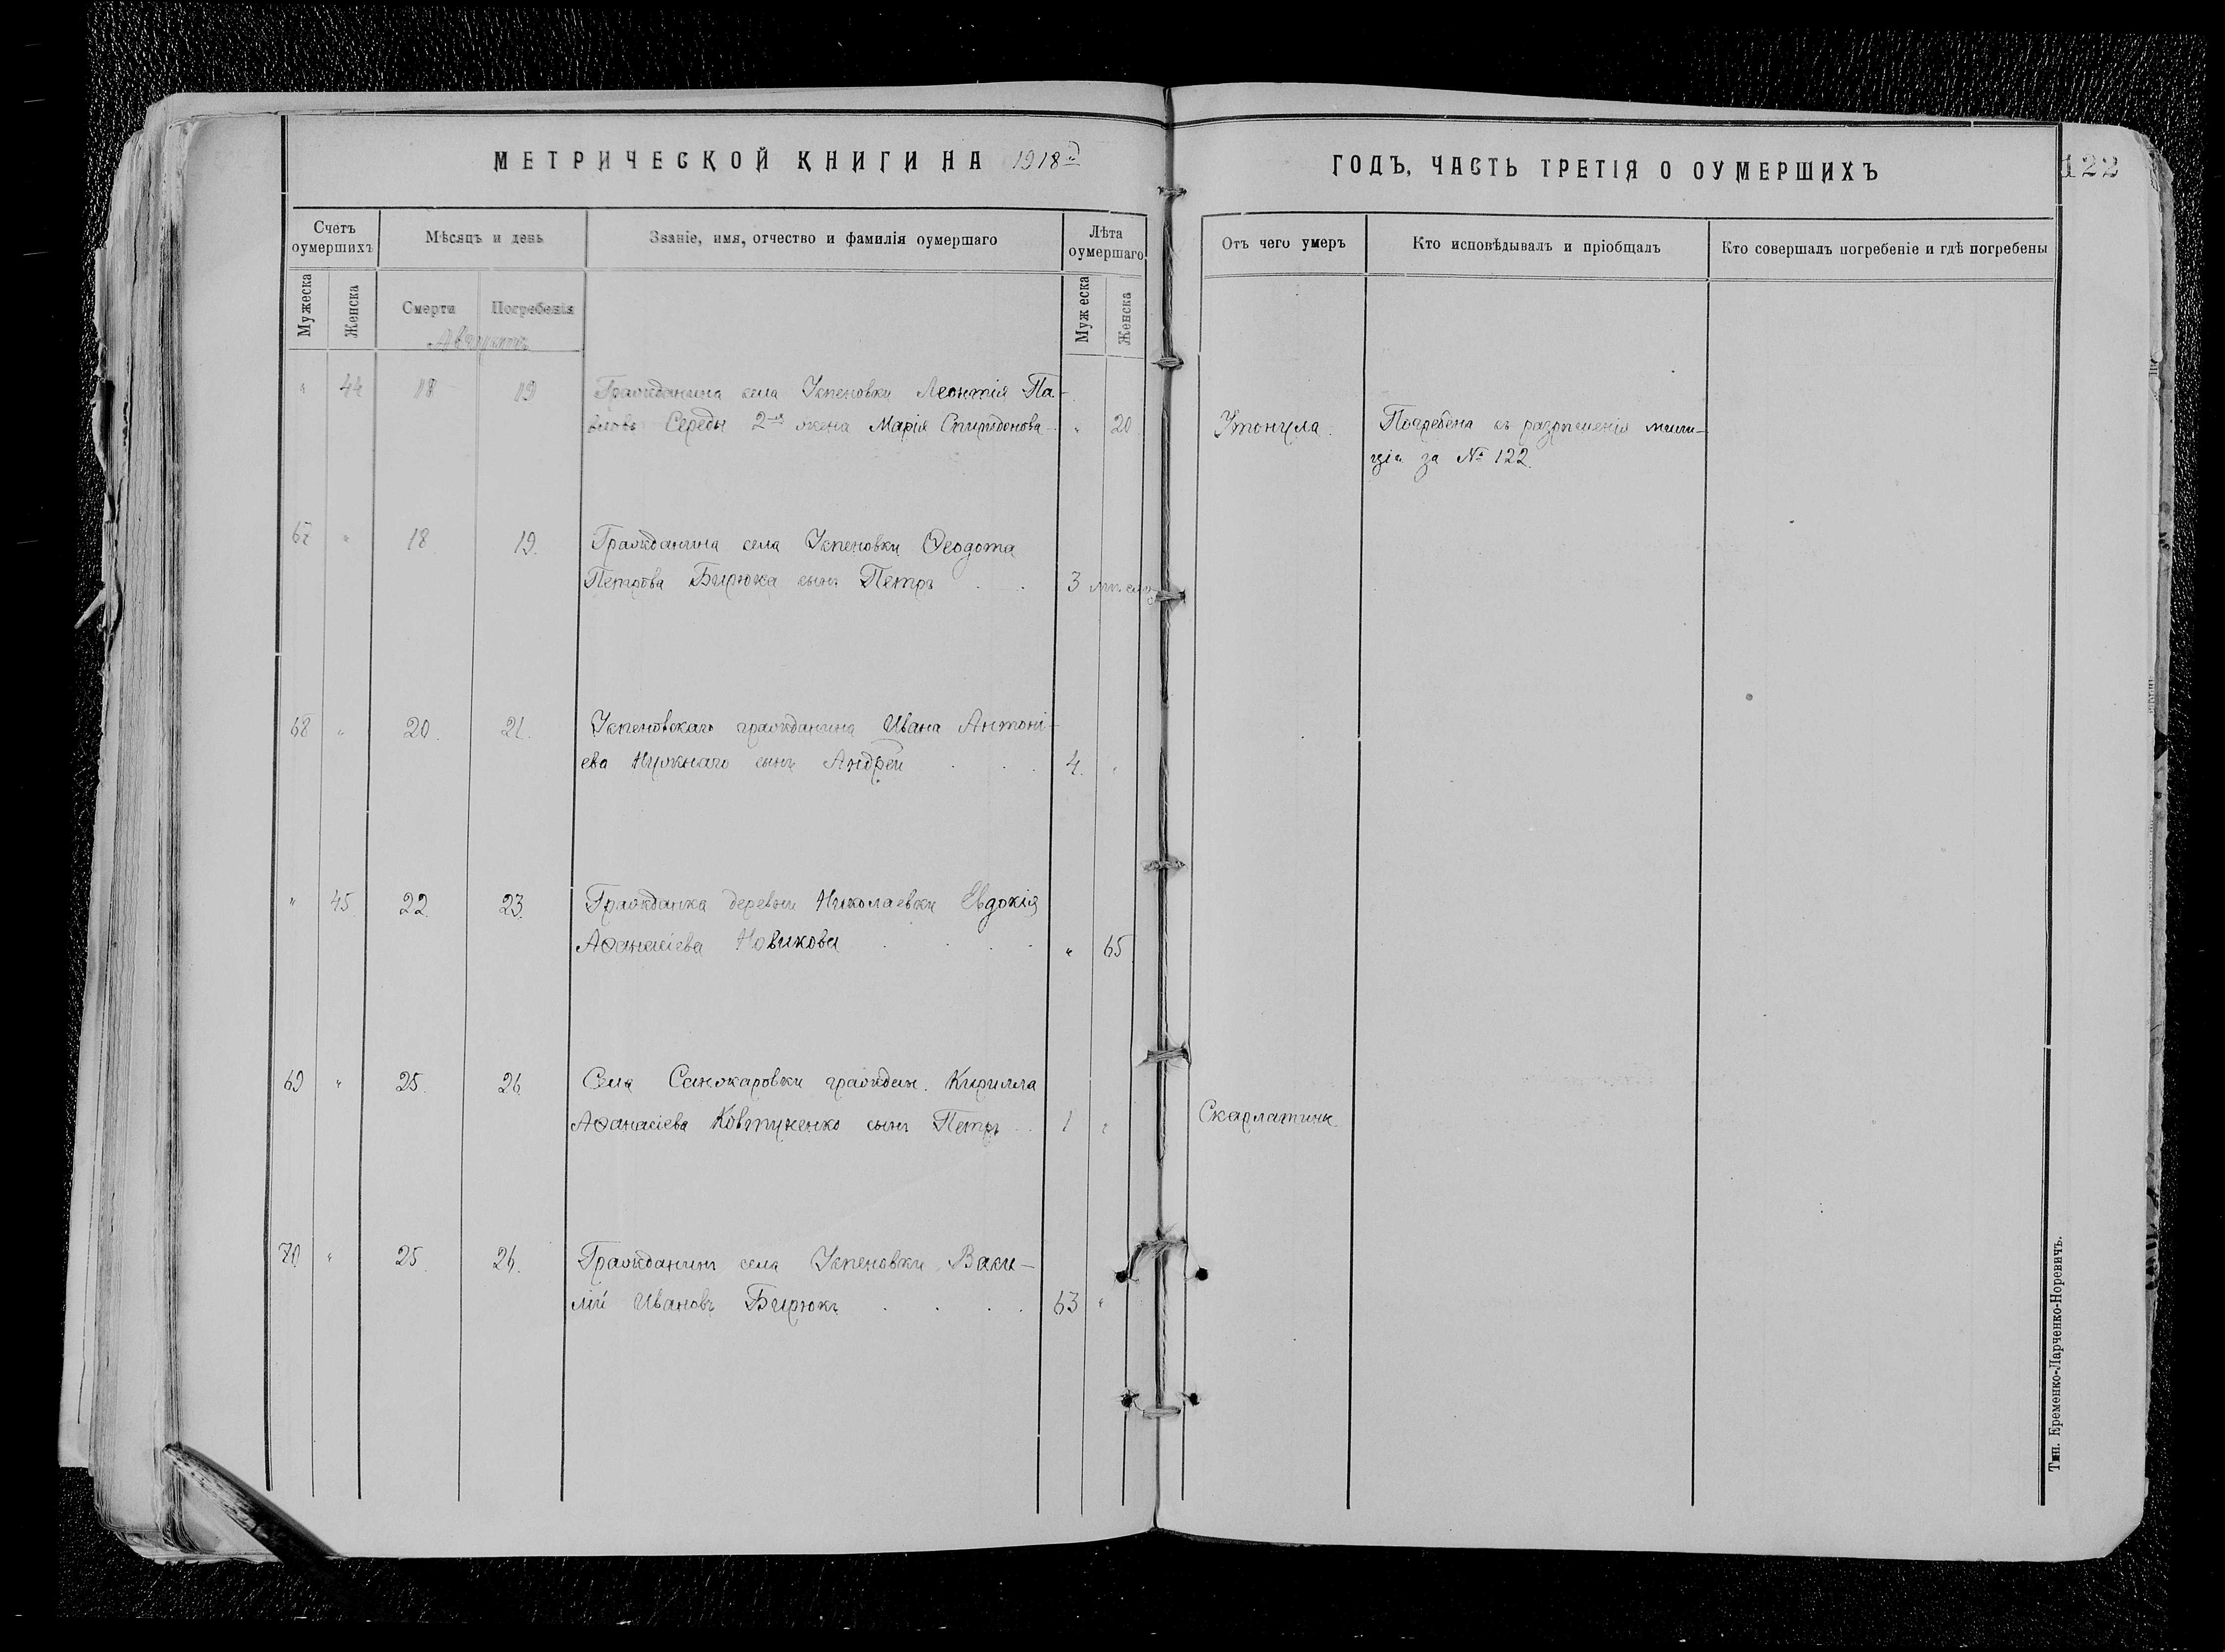 МЕТРИЧЕСКОЙ КНИГИ НА 1918й
ГОДЪ, ЧАСТЬ ТРЕТІЯ О ОУМЕРШИХЪ
122
Счетъ оумершихъ
Мѣсяцъ и день
Званіе, имя, отчество и фамилія оумершаго
Лѣта оумершаго
Отъ чего умеръ
Кто исповѣдывалъ и пріобщалъ
Кто совершалъ погребеніе и гдѣ погребены
Мужеска
Женска
Смерти
Погребенія
Муж еска
Женска
Августъ
" 44 18 19 Гражданина села Успеновки Леонтія Па-
влова Середы 2-я жена Марія Спиридонова " 20 Утонула. Погребена съ разрѣшенія мили-
ціи за № 122.
67 " 18 19. Гражданина села Успеновки Ѳеодота
Петрова Бирюка сынъ Петръ 3 мѣсяц
68 " 20. 21. Успеновскаго гражданина Ивана Антоні-
ева Нужнаго сынъ Андрей 4. "
" 45 22. 23. Гражданка деревни Николаевки Евдокія
Аѳанасіева Новикова " 65
69 " 25. 26 Села Санжаровки граждан. Кирилла
Аѳанасіева Ковтуненко сынъ Петръ 1 " Скарлатины.
70 " 25. 26. Гражданинъ села Успеновки Васи-
лій Ивановъ Бирюкъ 63 "
Тип. Еременко-Ларченко-Норевичъ.